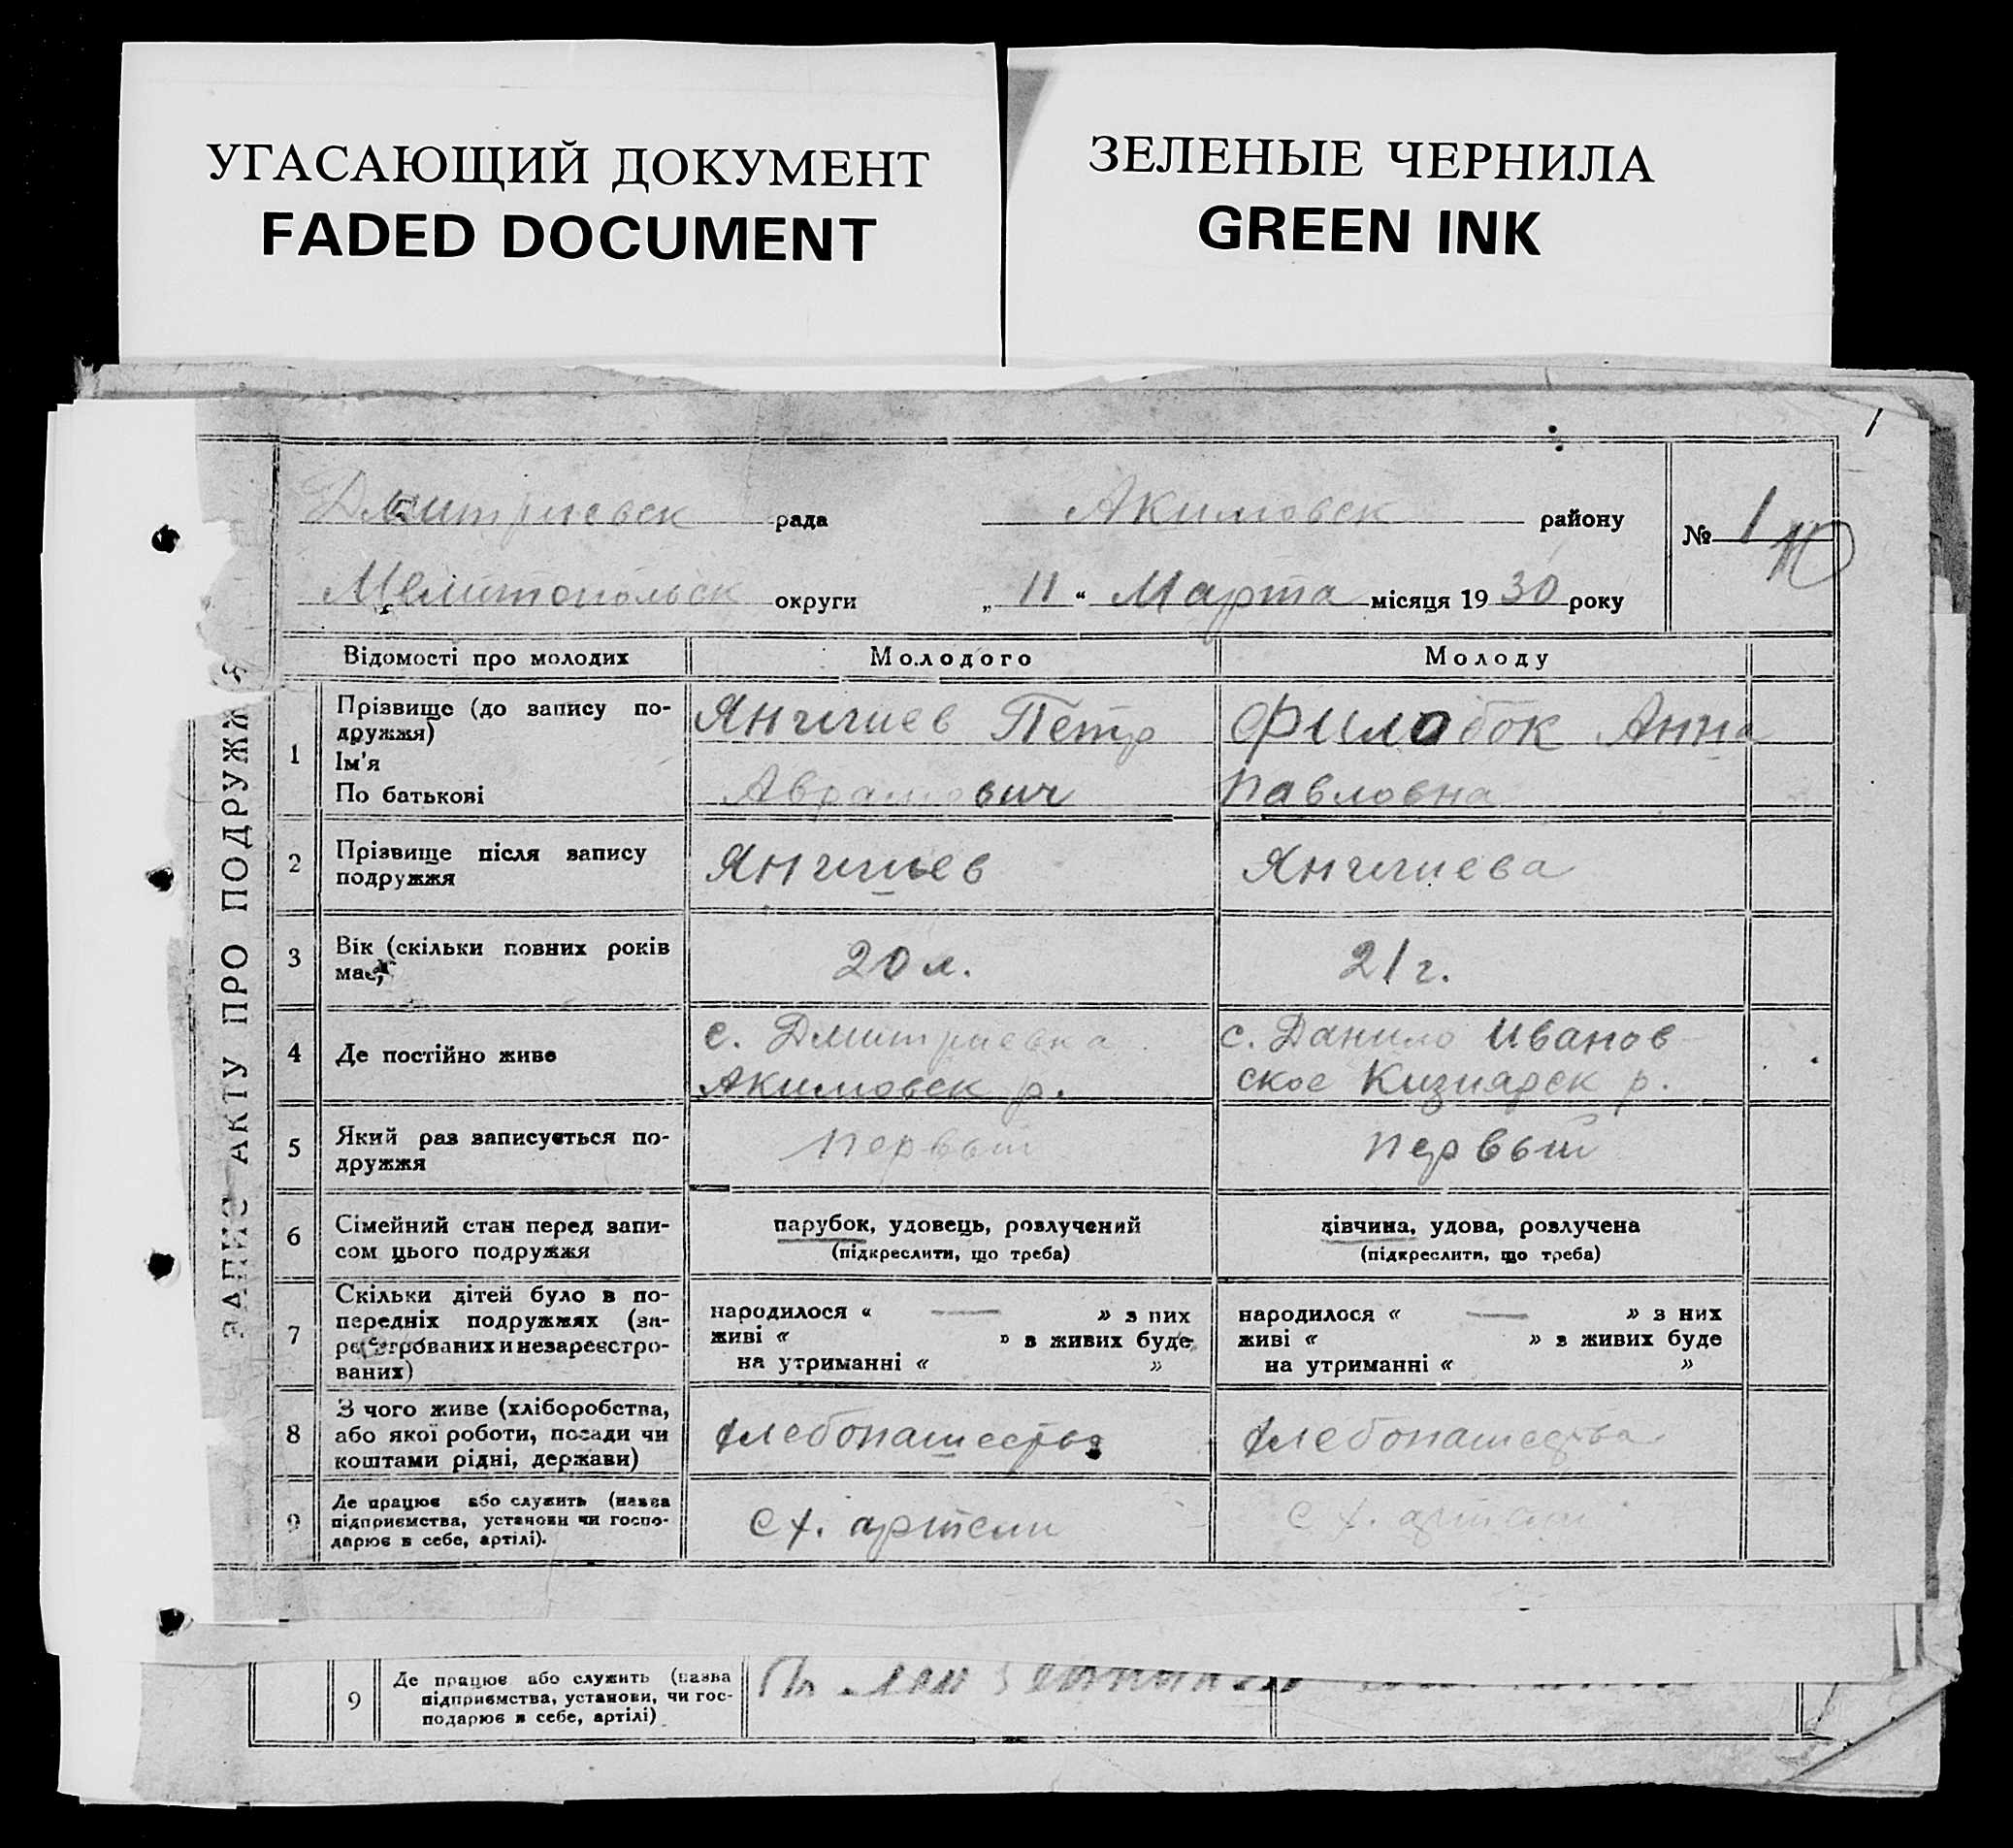 УГАСАЮЩИЙ ДОКУМЕНТ
FADED DOCUMENT
ЗЕЛЕНЫЕ ЧЕРНИЛА
GREEN INK
1
Дмитриевск рада Акимовск району
№ 1
Мелитопольск округи „ 11 “ Марта місяця 19 30 року
ЗАПИС АКТУ ПРО ПОДРУЖЖЯ
Відомості про молодих Молодого Молоду
1
Прізвище (до запису по-
дружжя)
Ім'я
По батькові
Янгичиев Петр
Аврамович
Филобок Анна
Павловна
2
Прізвище після запису
подружжя
Янгичиев
Янгичиева
3
Вік (скільки повних років
має)
20 л.
21 г.
4
Де постійно живе
с. Дмитриевка
Акимовск р.
с. Данило Иванов
ское Кизиярск р.
5
Який раз записується по-
дружжя
первый
первый
6
Сімейний стан перед запи-
сом цього подружжя
парубок, удовець, розлучений
(підкреслити, що треба)
дівчина, удова, розлучена
(підкреслити, що треба)
7
Скільки дітей було в по-
передніх подружжях (за-
реєстрованих и незареєстро-
ваних)
народилося « — » з них
живі « » в живих буде
на утриманні « »
народилося « — » з них
живі « » з живих буде
на утриманні « »
8
З чого живе (хліборобства,
або якої роботи, посади чи
коштами рідні, держави)
хлебопашество
хлебопашества
9
Де працює або служить (назва
підприємства, установи чи госпо-
дарює в себе, артілі).
с х. артели
с х. артели
9
Де працює або служить (назва
підприємства, установи, чи гос-
подарює в себе, артілі)